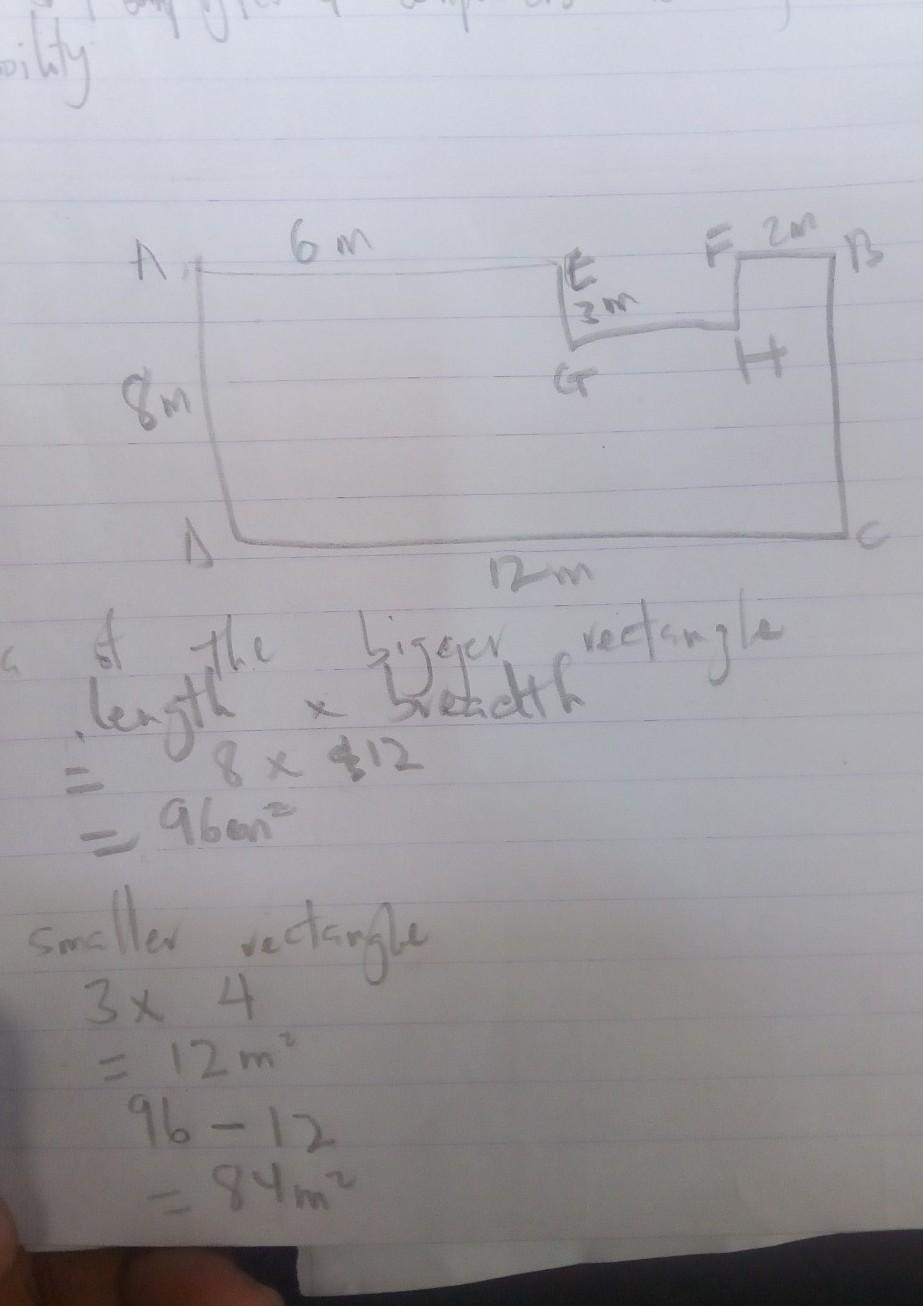 6 m
A
E
F
2m
B
3m
G
H
8m
D
C
12m
of the bigger rectangle
length x breadth
= 8 x 12
= 96m²
smaller rectangle
3 x 4
= 12m²
96 - 12
= 84m²